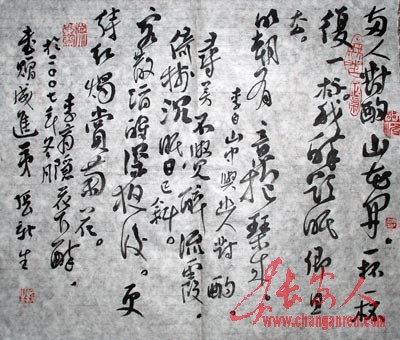 两人對酌山花開。一杯一杯
復一杯。我醉欲眠卿且
去。
明朝有意抱琴来。
李白山中與幽人對酌。
尋芳不覺醉流霞。
倚樹沉眠日已斜。
客散酒醒深夜後。更
持红烛賞花。
李商隱花下醉。
於二〇〇七年冬月
生
长安人
www.changanren.com